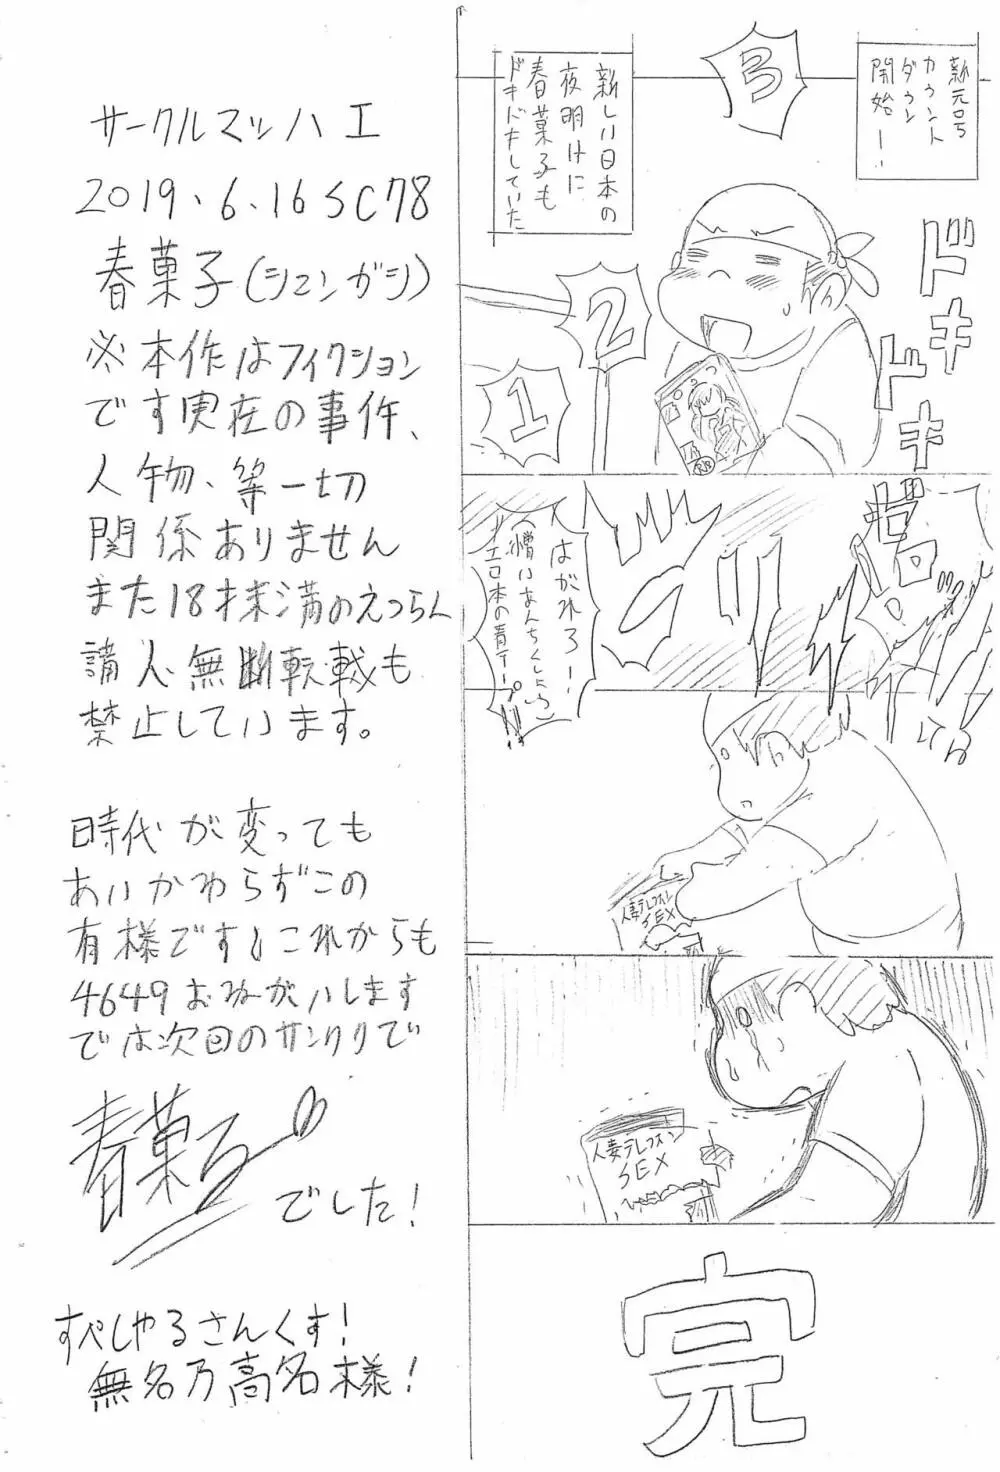 新元号
カウント
ダウン
開始ー!
3
新しい日本の
夜明けに
春菓子も
ドキドキしていた
2
1
ドキ
ドキ
はがれろー!
エロ本の青テープ!!
人妻テレフォン
SEX
人妻テレフォン
SEX
完
サークルマッハ工
2019.6.16 SC78
春菓子(シュンガシ)
※本作はフィクション
です実在の事件、
人物、等一切
関係ありません
また18才未満のえつらん
購入無断転載も
禁止しています。
時代が変っても
あいかわらずこの
有様です!これからも
4649おねがいします
では次回のサンクリで
春菓子
でした!
すぺしゃるさんくす!
無名乃高名様!